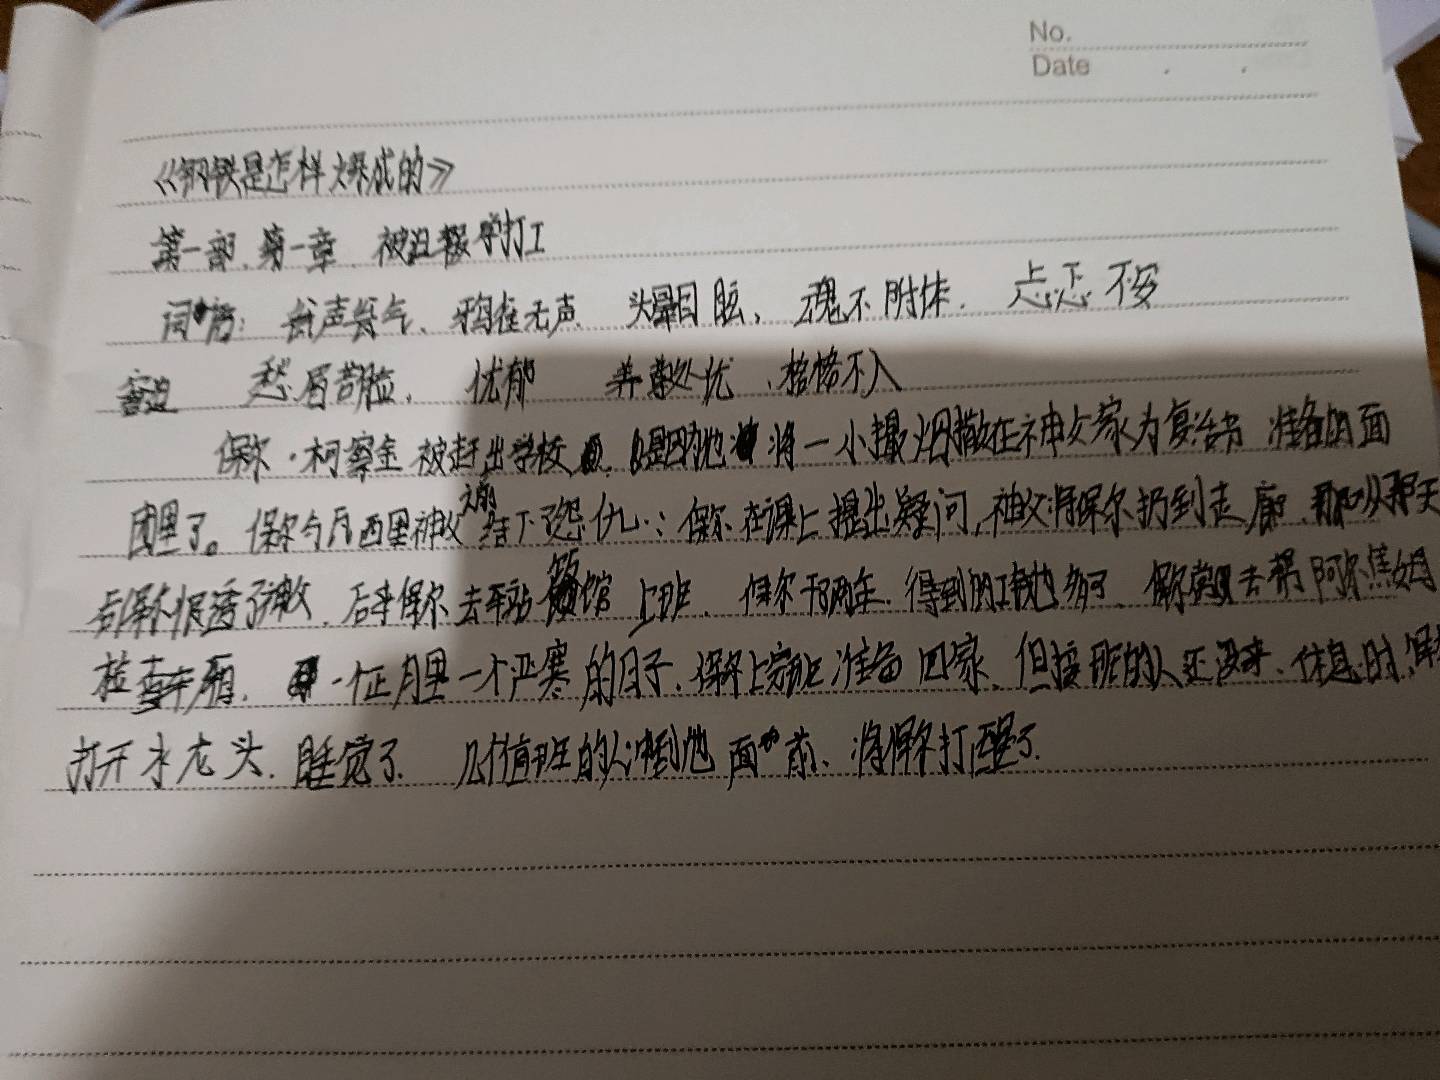 No.
Date
《钢铁是怎样炼成的》
第一部.第一章. 被迫辍学打工
词语: 瓮声瓮气、鸦雀无声 头晕目眩, 魂不附体. 忐忑不安
窘迫 愁眉苦脸, 忧郁 养尊处优、格格不入
保尔·柯察金被赶出学校, 是因为他将一小撮烟撒在神父家为复活节准备的面
团里了。保尔与瓦西里神父结下了怨仇: 保尔在课上提出疑问,神父将保尔扔到走廊、从那天
后保尔恨透了神父. 后来保尔去车站饭馆上班. 保尔干了两年. 得到的工钱也 去帮阿尔焦姆
检查车厢. 一个正月里一个严寒的日子、保尔上完班准备回家、但接班的人还没来、休息时,保
打开水龙头. 睡觉了. 几个值班的人冲到他面前、将保尔打醒了.